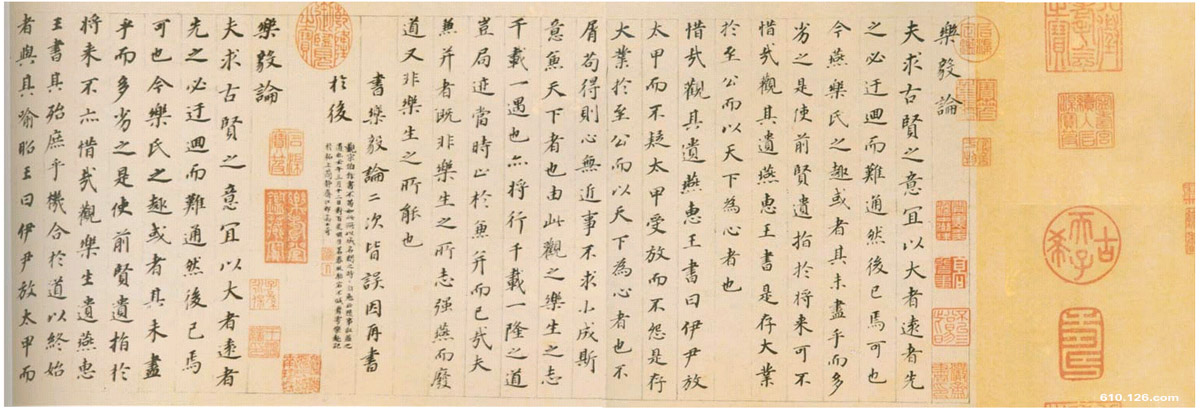 古希天子
壽
樂毅論
夫求古賢之意冝以大者遠者先
之必迂迴而難通然後已焉可也
今燕樂氏之趣或者其未盡乎而多
劣之是使前賢遺指於將来可不
惜哉觀其遺燕惠王書是存大業
於至公而以天下為心者也
惜哉觀其遺燕惠王書曰伊尹放
太甲而不疑太甲受放而不怨是存
大業於至公而以天下為心者也不
屑苟得則心無近事不求小成斯
意兼天下者也由此觀之樂生之志
千載一遇也亦將行千載一隆之道
豈局迹當時止於兼并而已哉夫
兼并者既非樂生之所志强燕而廢
道又非樂生之所能也
書樂毅論二次皆誤因再書
於後
樂毅論
夫求古賢之意冝以大者遠者
先之必迂迴而難通然後已焉
可也今樂氏之趣或者其未盡
乎而多劣之是使前賢遺指於
將来不亦惜哉觀樂生遺燕惠
王書其殆庶乎機合於道以終始
者與其喻昭王曰伊尹放太甲而
610.126.com